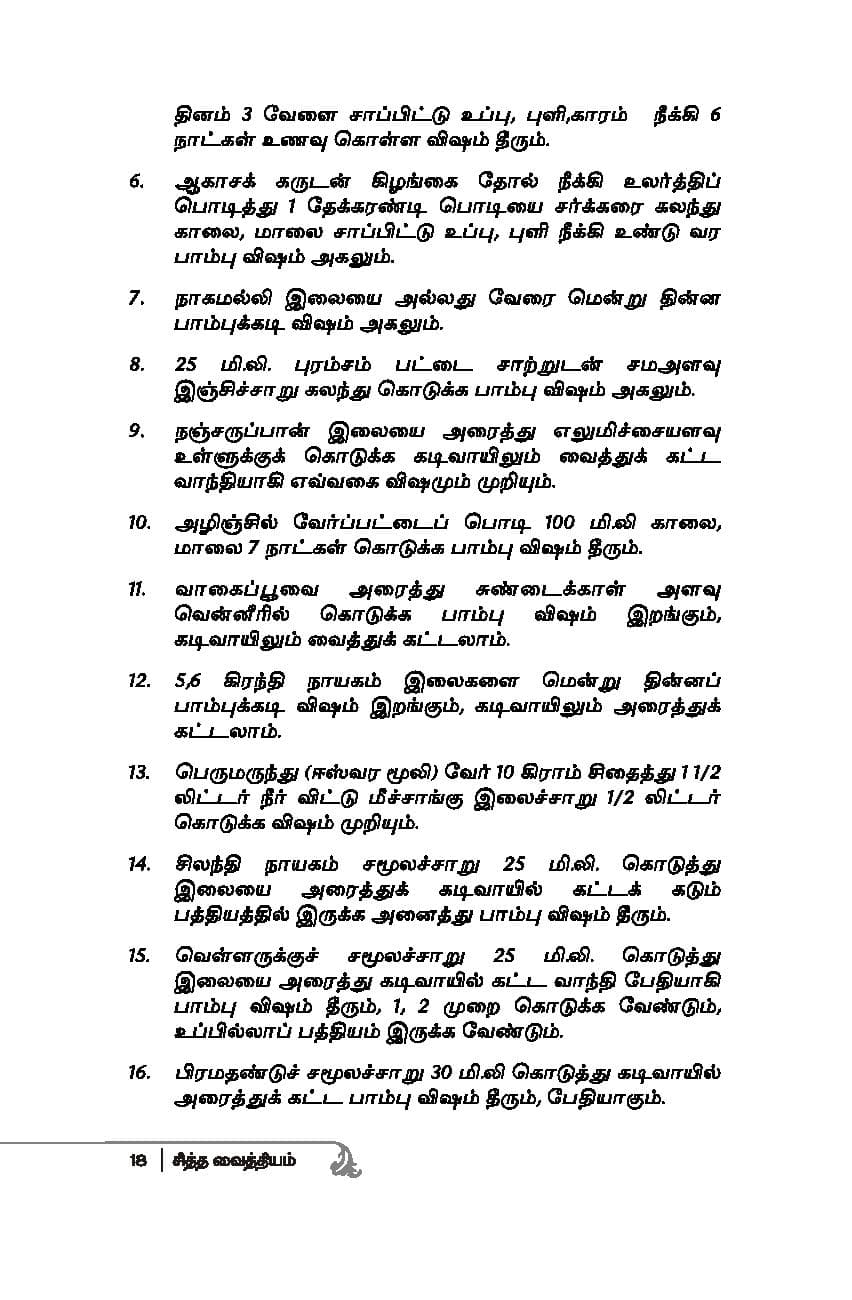 தினம் 3 வேளை சாப்பிட்டு உப்பு, புளி,காரம் நீக்கி 6
நாட்கள் உணவு கொள்ள விஷம் தீரும்.
6. ஆகாசக் கருடன் கிழங்கை தோல் நீக்கி உலர்த்திப்
பொடித்து 1 தேக்கரண்டி பொடியை சர்க்கரை கலந்து
காலை, மாலை சாப்பிட்டு உப்பு, புளி நீக்கி உண்டு வர
பாம்பு விஷம் அகலும்.
7. நாகமல்லி இலையை அல்லது வேரை மென்று தின்ன
பாம்புக்கடி விஷம் அகலும்.
8. 25 மி.லி. புரம்சம் பட்டை சாற்றுடன் சமஅளவு
இஞ்சிச்சாறு கலந்து கொடுக்க பாம்பு விஷம் அகலும்.
9. நஞ்சருப்பான் இலையை அரைத்து எலுமிச்சையளவு
உள்ளுக்குக் கொடுக்க கடிவாயிலும் வைத்துக் கட்ட
வாந்தியாகி எவ்வகை விஷமும் முறியும்.
10. அழிஞ்சில் வேர்ப்பட்டைப் பொடி 100 மி.லி காலை,
மாலை 7 நாட்கள் கொடுக்க பாம்பு விஷம் தீரும்.
11. வாகைப்பூவை அரைத்து சுண்டைக்காள் அளவு
வென்னீரில் கொடுக்க பாம்பு விஷம் இறங்கும்,
கடிவாயிலும் வைத்துக் கட்டலாம்.
12. 5,6 கிரந்தி நாயகம் இலைகளை மென்று தின்னப்
பாம்புக்கடி விஷம் இறங்கும், கடிவாயிலும் அரைத்துக்
கட்டலாம்.
13. பெருமருந்து (ஈஸ்வர மூலி) வேர் 10 கிராம் சிதைத்து 1 1/2
லிட்டர் நீர் விட்டு மீச்சாங்கு இலைச்சாறு 1/2 லிட்டர்
கொடுக்க விஷம் முறியும்.
14. சிலந்தி நாயகம் சமூலச்சாறு 25 மி.லி. கொடுத்து
இலையை அரைத்துக் கடிவாயில் கட்டக் கடும்
பத்தியத்தில் இருக்க அனைத்து பாம்பு விஷம் தீரும்.
15. வெள்ளருக்குச் சமூலச்சாறு 25 மி.லி. கொடுத்து
இலையை அரைத்து கடிவாயில் கட்ட வாந்தி பேதியாகி
பாம்பு விஷம் தீரும், 1, 2 முறை கொடுக்க வேண்டும்,
உப்பில்லாப் பத்தியம் இருக்க வேண்டும்.
16. பிரமதண்டுச் சமூலச்சாறு 30 மி.லி கொடுத்து கடிவாயில்
அரைத்துக் கட்ட பாம்பு விஷம் தீரும், பேதியாகும்.
18 சித்த வைத்தியம்